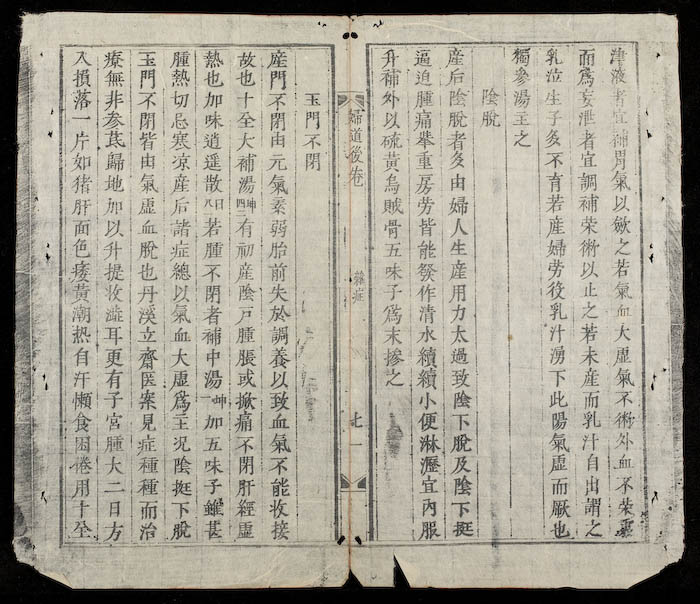 津液者宜補胃氣以斂之若氣血大虛氣不術外血不荣裏
而爲妄泄者宜調補荣術以止之若未産而乳汁自出謂之
乳泣生子多不育若産婦劳役乳汁湧下此陽氣虛而厥也
獨參湯主之
陰脫
産后陰脫者多由婦人生産用力太過致陰下脫及陰下挺
逼迫腫痛舉重房劳皆能發作清水續續小便淋瀝宜內服
升補外以硫黄烏賊骨五味子爲末摻之
婦道後卷
雜症
玉門不閉
産門不閉由元氣素弱胎前失於調養以致血氣不能收接
故也十全大補湯坤四二有初産陰户腫脹或焮痛不閉肝經虛
熱也加味逍遥散日八若腫不閉者補中湯坤一加五味子雖甚
腫熱切忌寒凉産后諸症總以氣血大虛爲主况陰挺下脫
玉門不閉皆由氣虛血脫也丹溪立齋医案見症種種而治
療無非参芪歸地加以升提收澁耳更有子宮腫大二日方
入損落一片如猪肝面色痿黃潮热自汗懶食困倦用十全